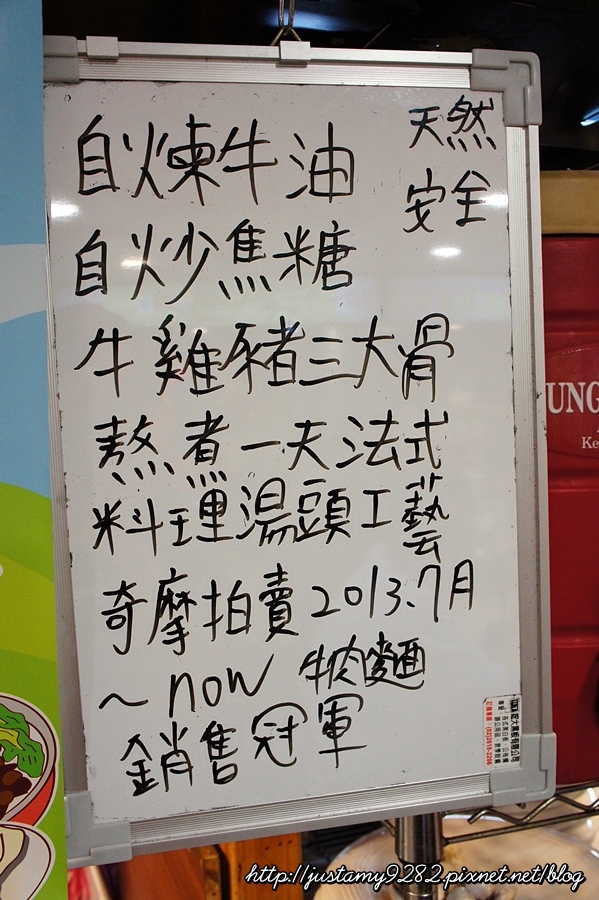 自炼牛油
天然
安全
自炒焦糖
牛雞豬三大骨
熬煮一天法式
料理湯頭工藝
奇摩拍賣2013.7月
~now 牛肉麵
銷售冠軍
UNG
Ke
http://justamy9282.pixnet.net/blog